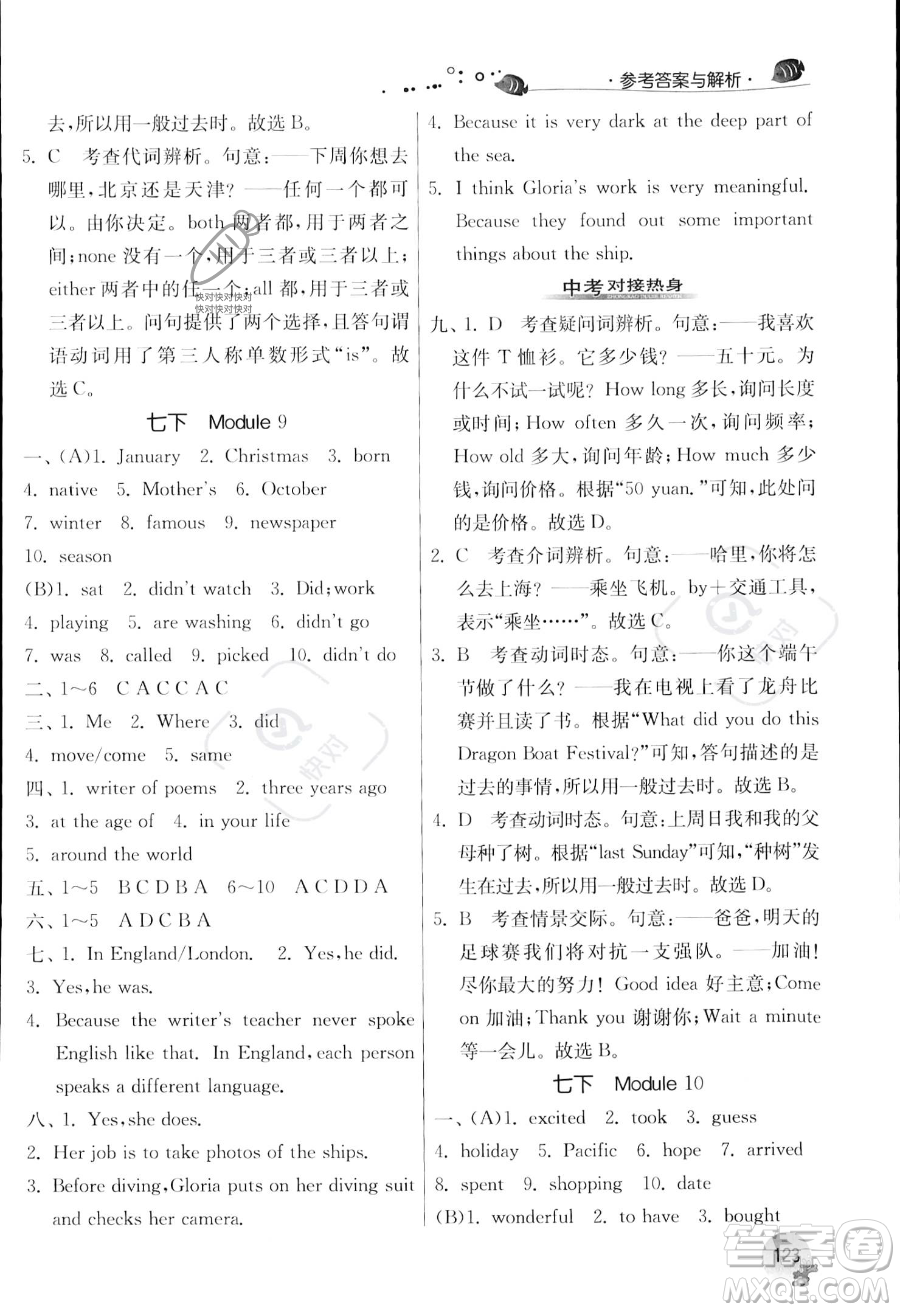 ·参考答案与解析·
去,所以用一般过去时。故选B。
5. C 考查代词辨析。句意:——下周你想去
哪里,北京还是天津?——任何一个都可
以。由你决定。both 两者都,用于两者之
间;none 没有一个,用于三者或三者以上;
either 两者中的任一个;all 都,用于三者或
三者以上。问句提供了两个选择,且答句谓
语动词用了第三人称单数形式“is”。故
选C。
七下 Module 9
一、(A)1. January 2. Christmas 3. born
4. native 5. Mother's 6. October
7. winter 8. famous 9. newspaper
10. season
(B)1. sat 2. didn't watch 3. Did;work
4. playing 5. are washing 6. didn't go
7. was 8. called 9. picked 10. didn't do
二、1~6 CACCAC
三、1. Me 2. Where 3. did
4. move/come 5. same
四、1. writer of poems 2. three years ago
3. at the age of 4. in your life
5. around the world
五、1~5 BCDBA 6~10 ACDDA
六、1~5 ADCBA
七、1. In England/London. 2. Yes,he did.
3. Yes,he was.
4. Because the writer's teacher never spoke
English like that. In England,each person
speaks a different language.
八、1. Yes,she does.
2. Her job is to take photos of the ships.
3. Before diving,Gloria puts on her diving suit
and checks her camera.
4. Because it is very dark at the deep part of
the sea.
5. I think Gloria's work is very meaningful.
Because they found out some important
things about the ship.
中考对接热身
九、1. D 考查疑问词辨析。句意:——我喜欢
这件 T 恤衫。它多少钱?——五十元。为
什么不试一试呢? How long 多长,询问长度
或时间;How often 多久一次,询问频率;
How old 多大,询问年龄;How much 多少
钱,询问价格。根据“50 yuan.”可知,此处问
的是价格。故选 D。
2. C 考查介词辨析。句意:——哈里,你将怎
么去上海?——乘坐飞机。by+交通工具,
表示“乘坐……”。故选 C。
3. B 考查动词时态。句意:——你这个端午
节做了什么?——我在电视上看了龙舟比
赛并且读了书。根据“What did you do this
Dragon Boat Festival?”可知,答句描述的是
过去的事情,所以用一般过去时。故选 B。
4. D 考查动词时态。句意:上周日我和我的父
母种了树。根据“last Sunday”可知,“种树”发
生在过去,所以用一般过去时。故选 D。
5. B 考查情景交际。句意:——爸爸,明天的
足球赛我们将对抗一支强队。——加油!
尽你最大的努力! Good idea 好主意;Come
on 加油;Thank you 谢谢你;Wait a minute
等一会儿。故选 B。
七下 Module 10
一、(A)1. excited 2. took 3. guess
4. holiday 5. Pacific 6. hope 7. arrived
8. spent 9. shopping 10. date
(B)1. wonderful 2. to have 3. bought
123
快对快对快对
快对快对快对
快对
快对
答案卷
MXQE.COM